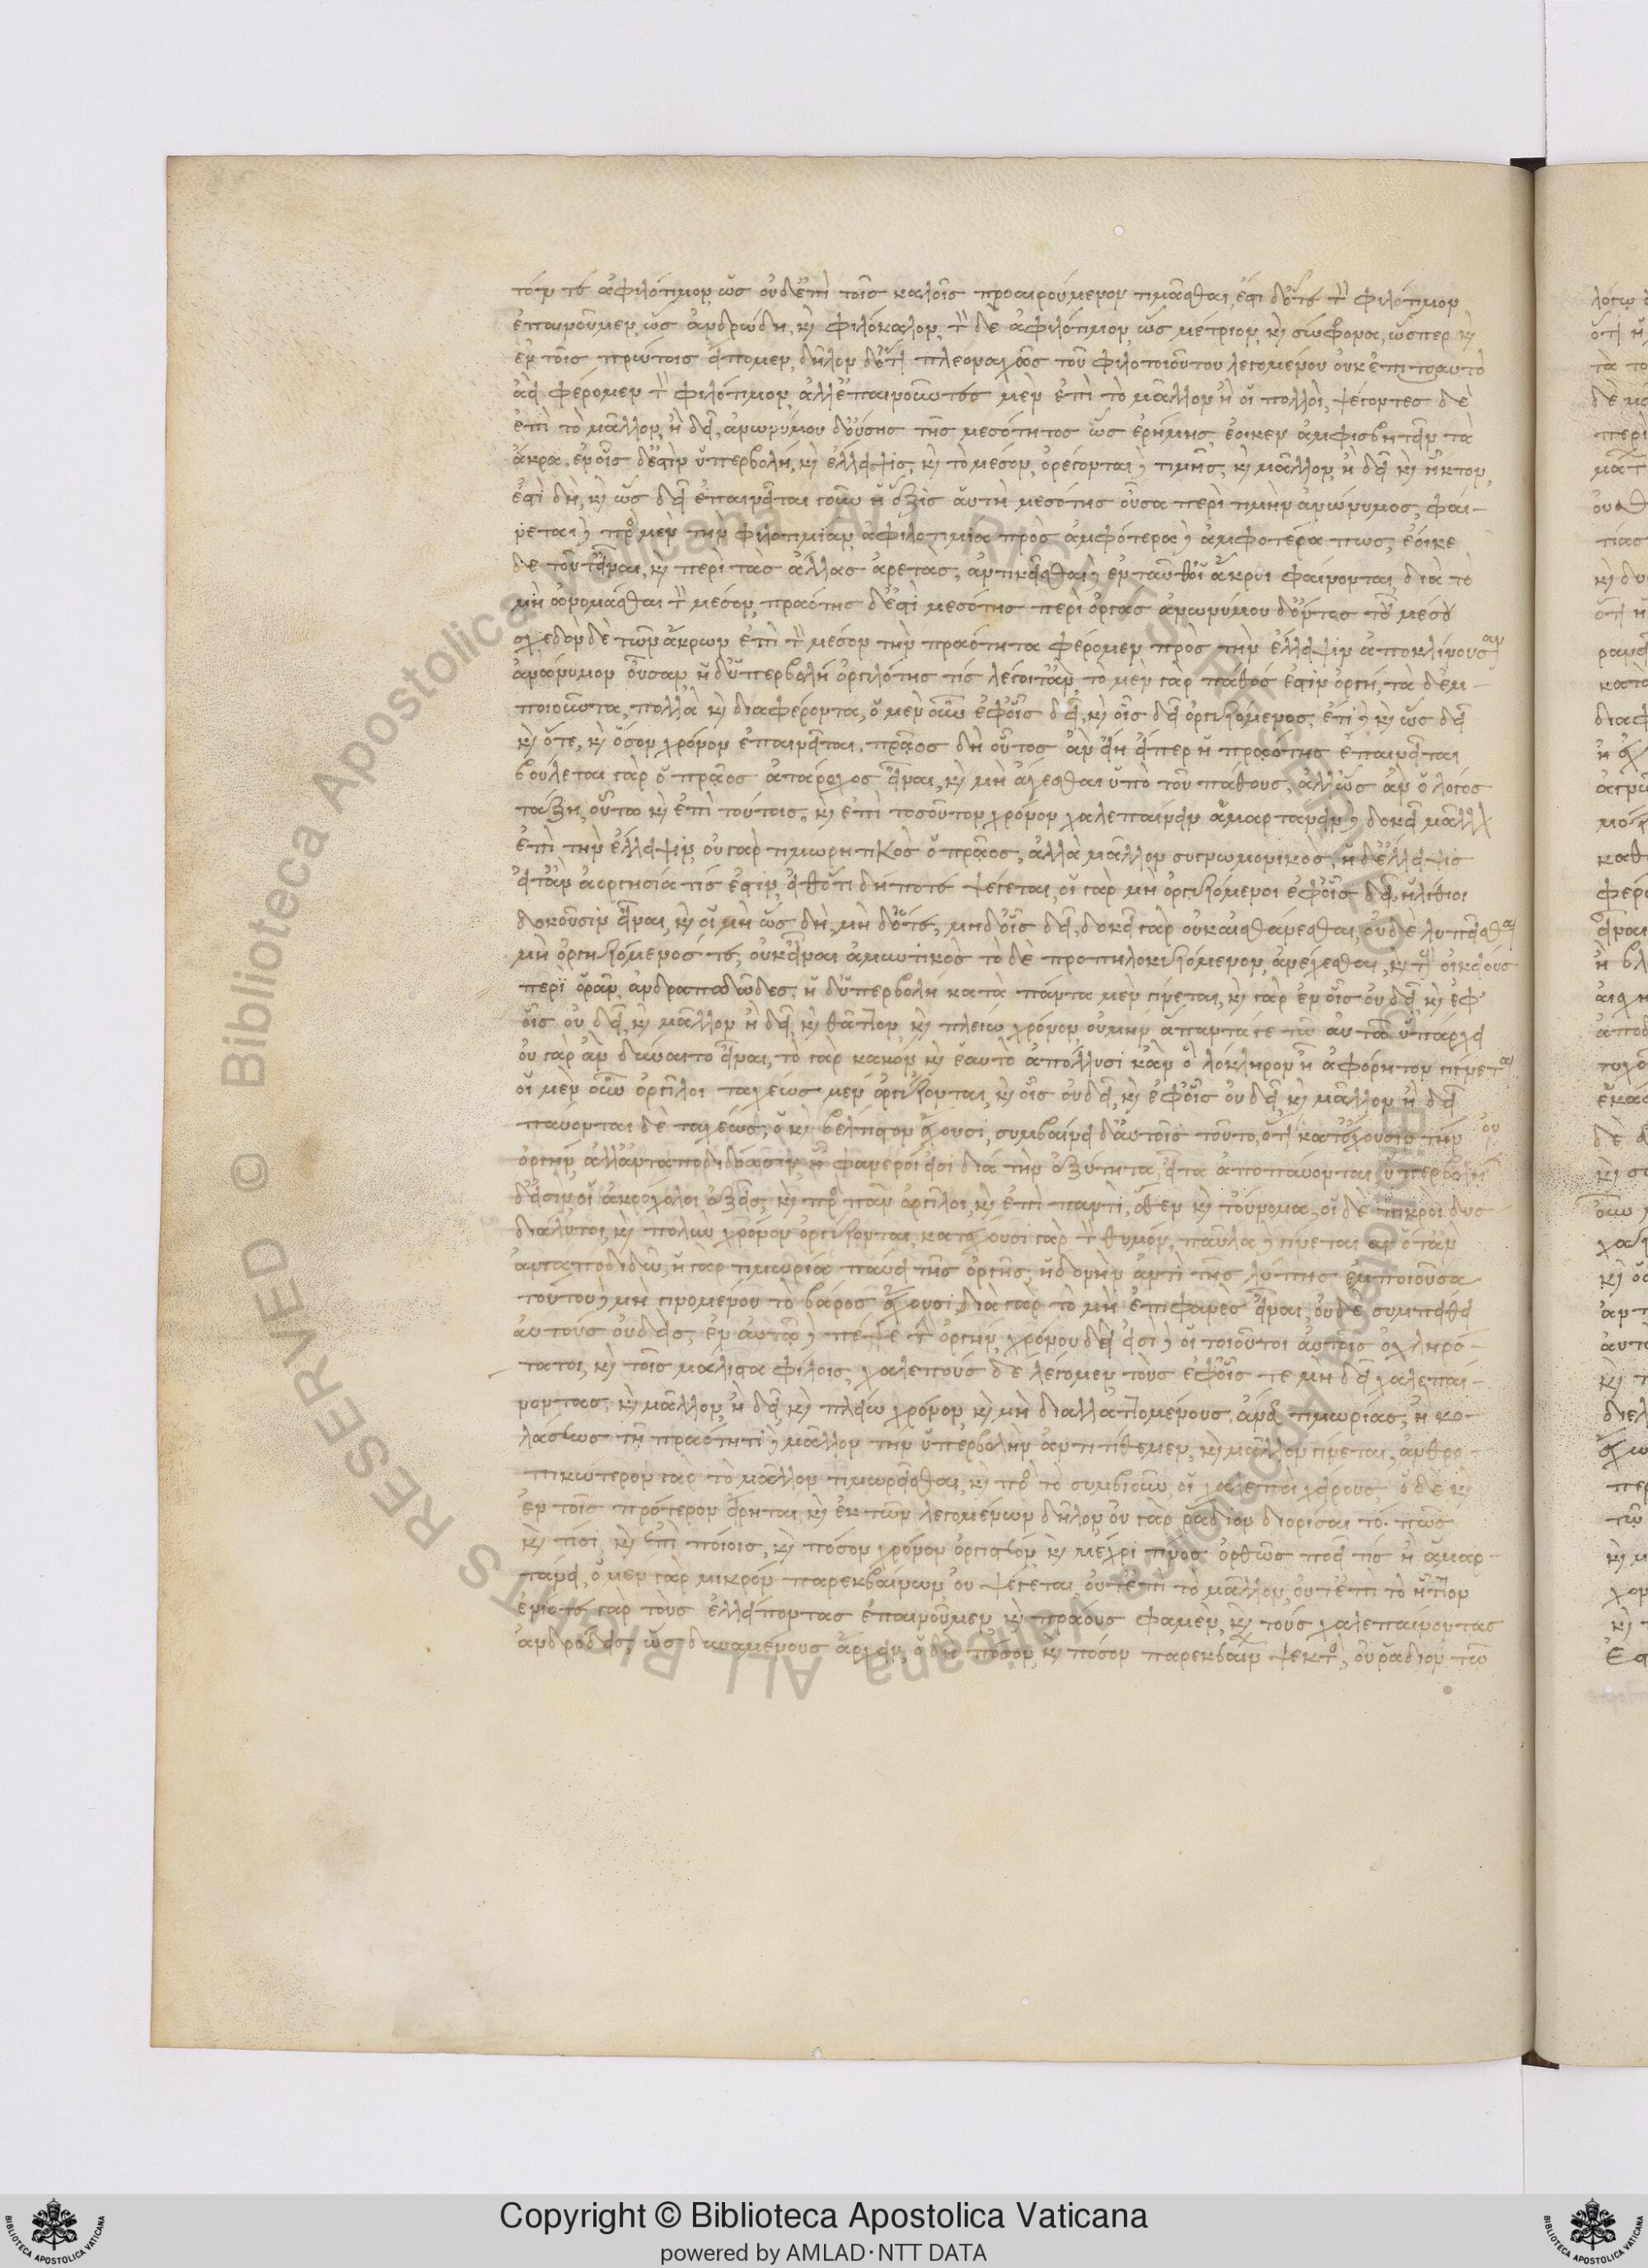 τόν τε ἀφιλότιμον, ὡς οὐδ' ἐπὶ τοῖς καλοῖς προαιρούμενον τιμᾶσθαι, ἔστι δ' ὅτε τὸν φιλότιμον
ἐπαινοῦμεν, ὡς ἀνδρώδη, καὶ φιλόκαλον, τὸν δὲ ἀφιλότιμον, ὡς μέτριον, καὶ σώφρονα, ὥσπερ καὶ
ἐν τοῖς πρώτοις εἴπομεν, δῆλον δ' ὅτι πλεοναχῶς τοῦ φιλοτοιούτου λεγομένου οὐκ ἐπὶ τὸ αυτὸ
ἀεὶ φέρομεν τὸν φιλότιμον, ἀλλ' ἐπαινοῦντες μὲν ἐπὶ τὸ μᾶλλον ἢ οἱ πολλοὶ, ψέγοντες δὲ
ἐπὶ τὸ μᾶλλον, ἢ δεῖ, ἀνωνύμου δ' οὔσης τῆς μεσότητος ὡς ἐρήμης, ἔοικεν ἀμφισβητεῖν τὰ
ἄκρα. ἐν οἷς δ' ἔστιν ὑπερβολή, καὶ ἔλλειψις, καὶ τὸ μέσον, ὀρέγονται δὲ τιμῆς, καὶ μᾶλλον, ἢ δεῖ καὶ ἧττον,
ἔστι δὴ, καὶ ὡς δεῖ ἐπαινεῖται γοῦν ἡ ἕξις αὕτη μεσότης οὖσα περὶ τιμὴν ἀνώνυμος, φαί-
νεται δὲ πρὸς μὲν τὴν φιλοτιμίαν, ἀφιλοτιμία πρὸς ἀμφότερα δὲ ἀμφοτέρά πως, ἔοικε
δὲ τοῦτ' εἶναι, καὶ περὶ τὰς ἄλλας ἀρετάς, ἀντικεῖσθαι δὲ ἐνταῦθ' οἱ ἄκροι φαίνονται διὰ τὸ
μὴ ὠνομάσθαι τὸν μέσον, πραότης δ' ἐστὶ μεσότης περὶ ὀργάς ἀνωνύμου δ' ὄντος τοῦ μέσου
σχεδὸν δὲ τῶν ἄκρων ἐπὶ τὸν μέσον τὴν πραότητα φέρομεν πρὸς τὴν ἔλλειψιν ἀποκλίνουσαν
ἀνώνυμον οὖσαν, ἡ δ' ὑπερβολὴ ὀργιλότης τίς λέγοιτ' ἂν, τὸ μὲν γὰρ πάθος ἐστιν ὀργή, τὰ δ' ἐμ-
ποιοῦντα, πολλὰ καὶ διαφέροντα, ὁ μὲν οὖν ἐφ' οἷς δεῖ, καὶ οἷς δεῖ ὀργιζόμενος, ἔτι δὲ καὶ ὡς δεῖ
καὶ ὅτε, καὶ ὅσον χρόνον ἐπαινεῖται. πρᾶος δὴ οὗτος ἂν εἴη εἴπερ ἡ πραότης ἐπαινεῖται
βούλεται γὰρ ὁ πρᾶος ἀτάραχος εἶναι, καὶ μὴ ἄγεσθαι ὑπὸ τοῦ πάθους, ἀλλ' ὡς ἂν ὁ λόγος
τάξῃ, οὕτω καὶ ἐπὶ τούτοις, καὶ ἐπὶ τοσοῦτον χρόνον χαλεπαίνειν ἁμαρτάνειν δὲ δοκεῖ μᾶλλον
ἐπὶ τὴν ἔλλειψιν, οὐ γὰρ τιμωρητικὸς ὁ πρᾶος, ἀλλὰ μᾶλλον συγγνωμονικὸς, ἡ δ' ἔλλειψις
εἴτ' ἂν ἀοργησία τίς ἐστιν, εἴθ' ὅτι δήποτε ψέγεται, οἱ γὰρ μὴ ὀργιζόμενοι ἐφ' οἷς δεῖ, ἠλίθιοι
δοκοῦσιν εἶναι, καὶ οἱ μὴ ὡς δὴ, μὴ δ' ὅτε, μηδ' οἷς δεῖ, δοκεῖ γὰρ οὐκ αἰσθάνεσθαι, οὐδὲ λυπεῖσθαι
μὴ ὀργιζόμενός τε, οὐκ εἶναι ἀμυντικὸς τὸ δὲ προπηλακιζόμενον, ἀνέχεσθαι, καὶ τοὺς οἰκείους
περὶ ὁρᾶν, ἀνδραποδῶδες, ἡ δ' ὑπερβολὴ κατὰ πάντα μὲν γίνεται, καὶ γὰρ ἐν οἷς οὐ δεῖ, καὶ ἐφ'
οἷς οὐ δεῖ, καὶ μᾶλλον ἢ δεῖ, καὶ θᾶττον καὶ πλείω χρόνον, οὐ μὴν ἅπαντά γε τῷ αὐτῷ ὑπάρχει
οὐ γὰρ ἂν δύναιτο εἶναι, τὸ γὰρ κακόν, καὶ ἑαυτὸ ἀπόλλυσι κἂν ὁλόκληρον ᾖ ἀφόρητον γίνεται
οἱ μὲν οὖν ὀργίλοι ταχέως μὲν ὀργίζονται, καὶ οἷς οὐ δεῖ, καὶ ἐφ' οἷς οὐ δεῖ, καὶ μᾶλλον ἢ δεῖ
παύονται δὲ ταχέως, ὃ καὶ βέλτιστον ἔχουσι, συμβαίνει δ' αὐτοῖς τοῦτο, ὅτι κατέχουσιν τὴν οὐ
ὀργήν, ἀλλ' ἀνταποδιδόασιν ᾗ φανεροί εἰσι διὰ τὴν ὀξύτητα, εἶτα ἀποπαύονται ὑπερβολῇ
δ' εἰσὶν οἱ ἀκρόχολοι ὀξεῖς, καὶ πρὸς πᾶν ὀργίλοι, καὶ ἐπὶ παντὶ, ὅθεν καὶ τοὔνομα, οἱ δὲ πικροὶ δυσ-
διάλυτοι, καὶ πολὺν χρόνον ὀργίζονται, κατέχουσι γὰρ τὸν θυμόν, παῦλα δὲ γίνεται αν ὅταν
ἀνταποδιδῶ, ἡ γὰρ τιμωρία παύει τῆς ὀργῆς, ἡδονὴν ἀντὶ τῆς λύπης ἐμποιοῦσα
τούτου δὲ μὴ γινομένου τὸ βάρος ἔχουσι, διὰ γὰρ τὸ μὴ ἐπιφανὲς εἶναι, οὐδὲ συμπείθει
αὐτοὺς οὐδείς, ἐν αὐτῷ δὲ πέψαι τὴν ὀργὴν, χρόνου δεῖ εἰσὶ δὲ οἱ τοιοῦτοι αὑτοῖς ὀχληρό-
τατοι, καὶ τοῖς μάλιστα φίλοις, χαλεποὺς δὲ λέγομεν τοὺς ἐφ' οἷς τε μὴ δεῖ χαλεπαί-
νοντας, καὶ μᾶλλον, ἢ δεῖ, καὶ πλείω χρόνον, καὶ μὴ διαλλαττομένους ἄνευ τιμωρίας, ἢ κο-
λάσεως τῇ πραότητι δὲ μᾶλλον τὴν ὑπερβολὴν ἀντιτίθεμεν, καὶ μᾶλλον γίνεται, ἀνθρω-
πικώτερον γὰρ τὸ μᾶλλον τιμωρεῖσθαι, καὶ πρὸς τὸ συμβιοῦν, οἱ χαλεποὶ χείρους, ὃ δὲ καὶ
ἐν τοῖς πρότερον εἴρηται, καὶ ἐκ τῶν λεγομένων δῆλον, οὐ γὰρ ῥᾴδιον διορίσαι τὸ πῶς
καὶ τίσι, καὶ ἐπὶ ποίοις, καὶ πόσον χρόνον ὀργιστέον καὶ μέχρι τίνος ὀρθῶς ποεῖ τίς ἢ ἁμαρ-
τάνει, ὁ μὲν γὰρ μικρὸν παρεκβαίνων, οὐ ψέγεται, οὔτ' ἐπὶ τὸ μᾶλλον, οὔτ' ἐπὶ τὸ ἧττον
ἐνίοτε γὰρ τοὺς ἐλλείποντας ἐπαινοῦμεν, καὶ πράους φαμέν, καὶ τοὺς χαλεπαίνοντας
ἀνδρώδεις, ὡς δυναμένους ἄρχειν, ὁ δὴ πόσον, καὶ πόσον παρεκβαίνων ψεκτὸς, οὐ ῥᾴδιον τῷ
Copyright © Biblioteca Apostolica Vaticana
powered by AMLAD·NTT DATA